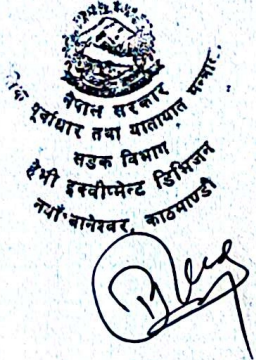 नेपाल सरकार
पूर्वाधार तथा यातायात
सडक विभाग
हेभी इक्वीपमेन्ट डिभिजन
नयाँ बानेश्वर, काठमाण्डौ